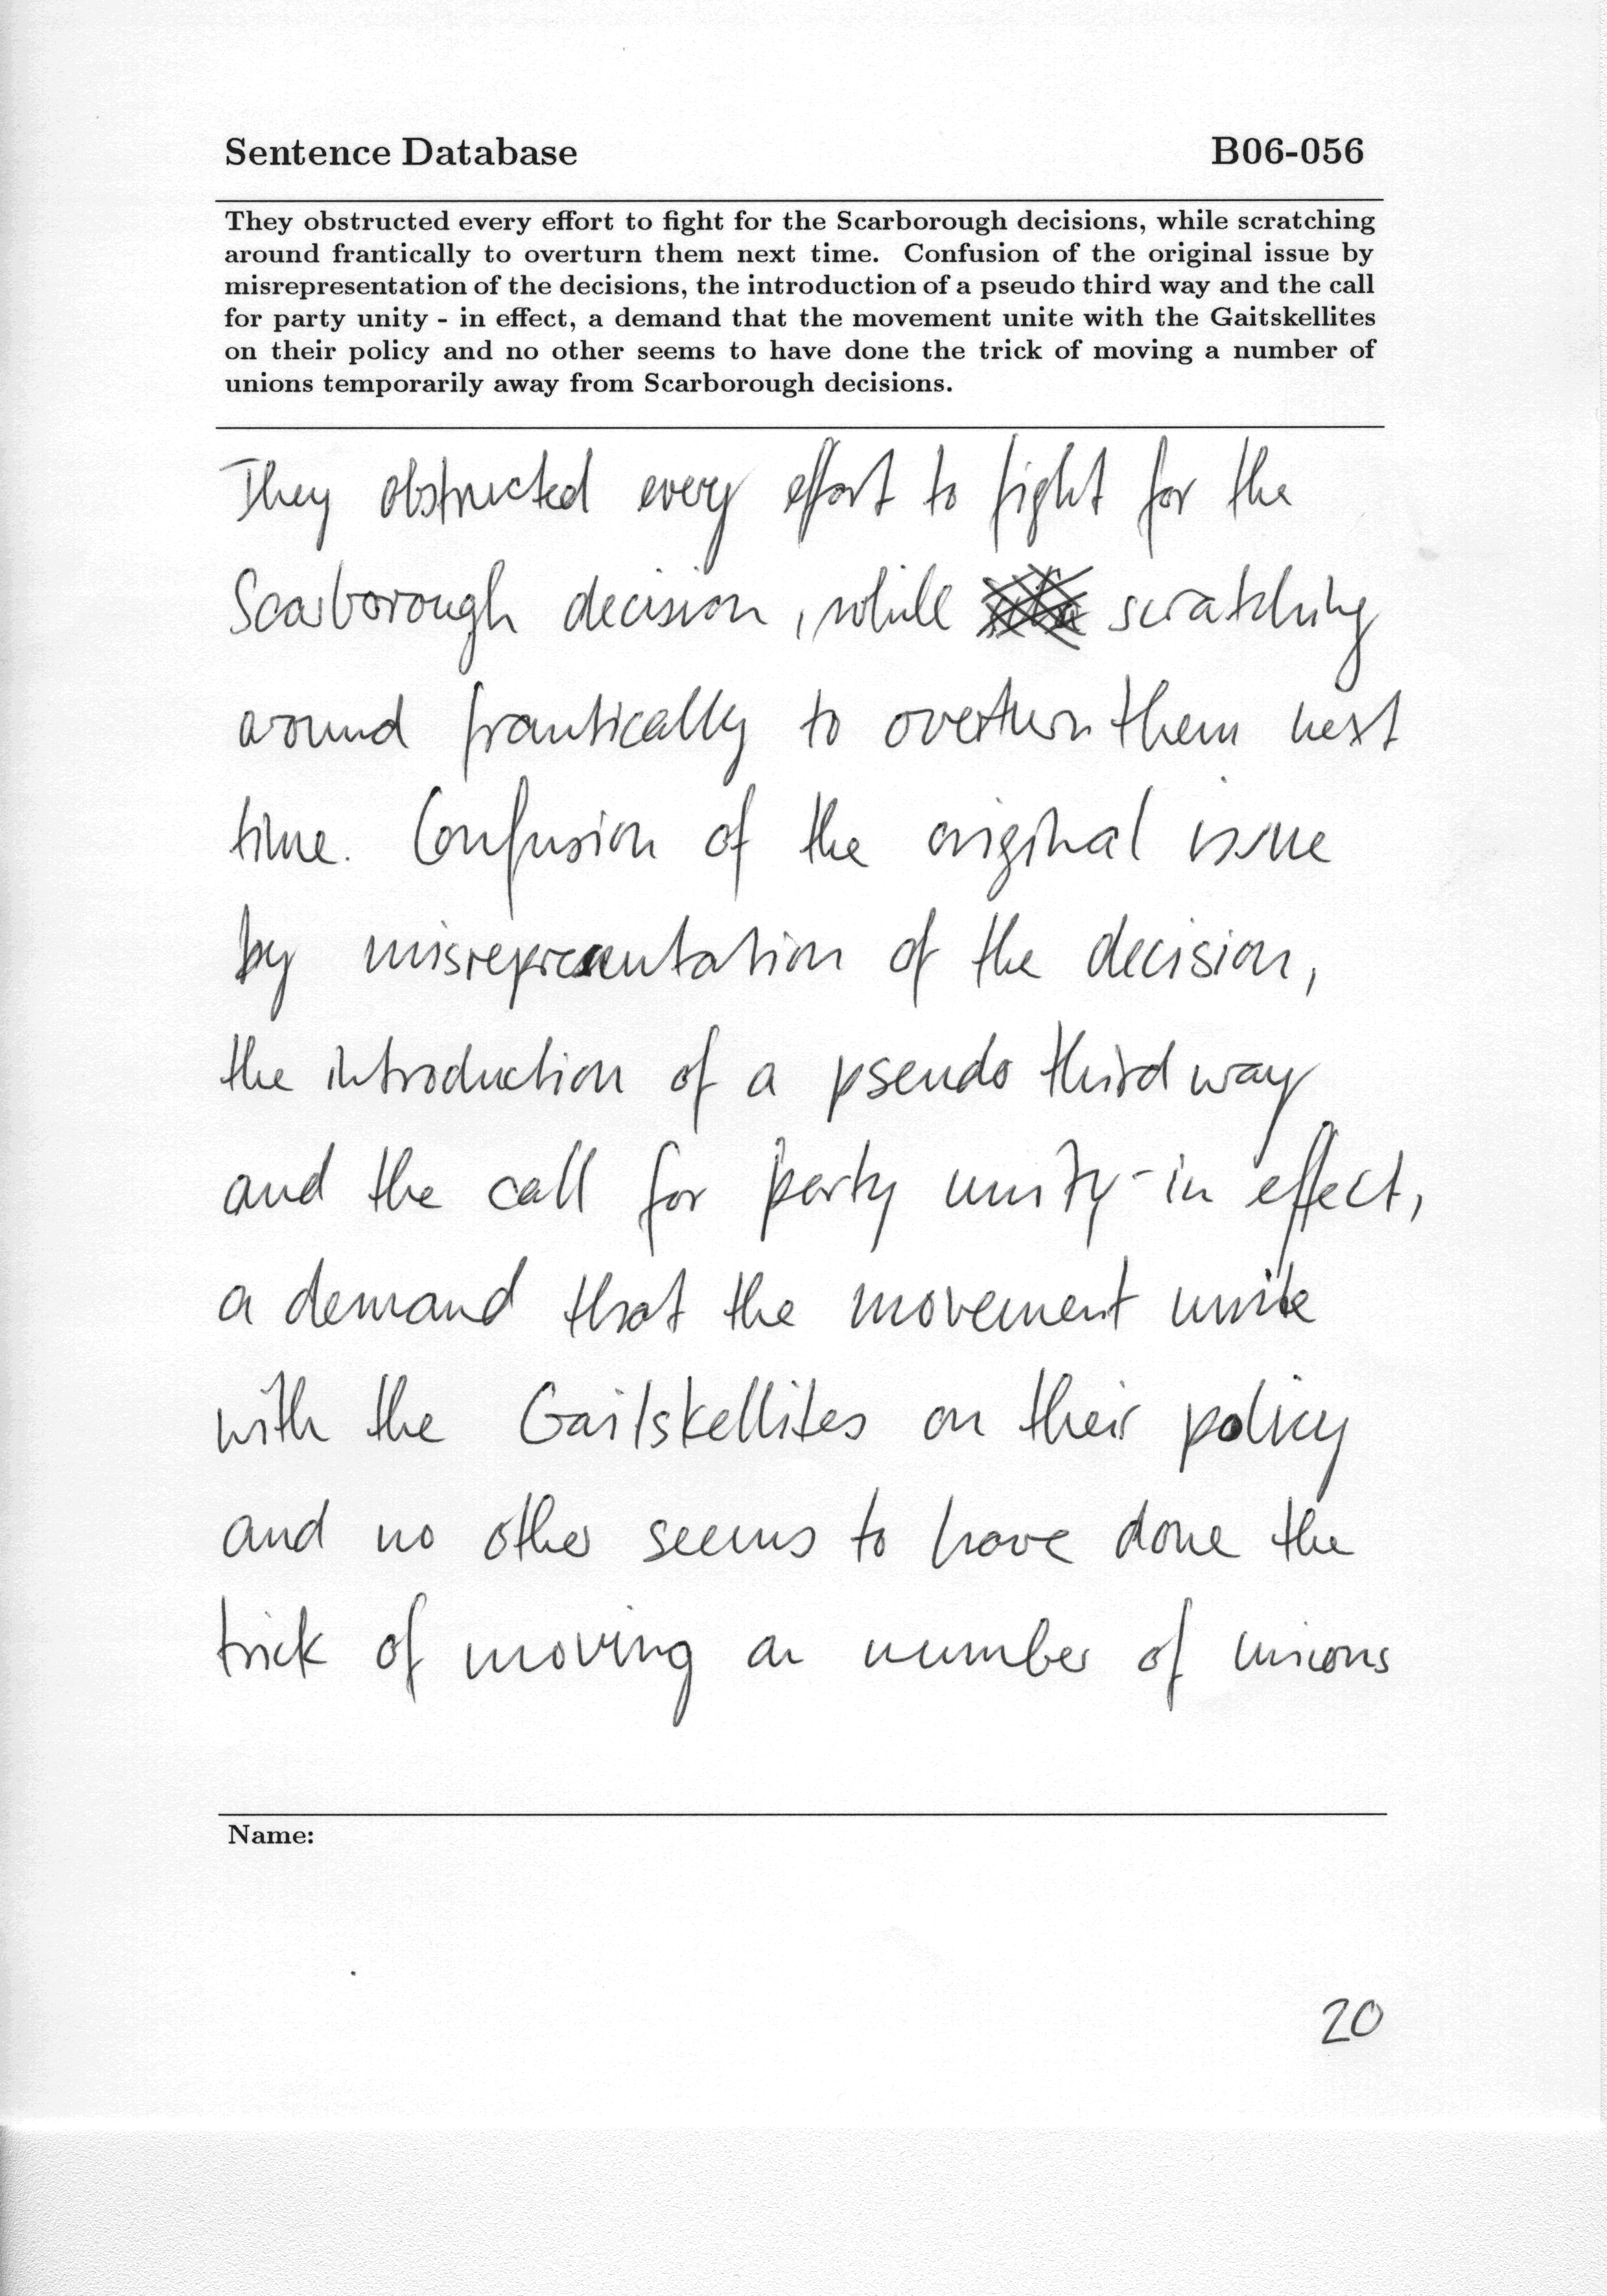 Sentence Database B06-056
They obstructed every effort to fight for the Scarborough decisions, while scratching
around frantically to overturn them next time. Confusion of the original issue by
misrepresentation of the decisions, the introduction of a pseudo third way and the call
for party unity - in effect, a demand that the movement unite with the Gaitskellites
on their policy and no other seems to have done the trick of moving a number of
unions temporarily away from Scarborough decisions.
They obstructed every effort to fight for the
Scarborough decision, while scratching
around frantically to overturn them next
time. Confusion of the original issue
by misrepresentation of the decision,
the introduction of a pseudo third way
and the call for party unity - in effect,
a demand that the movement unite
with the Gaitskellites on their policy
and no other seems to have done the
trick of moving a number of unions
Name:
20